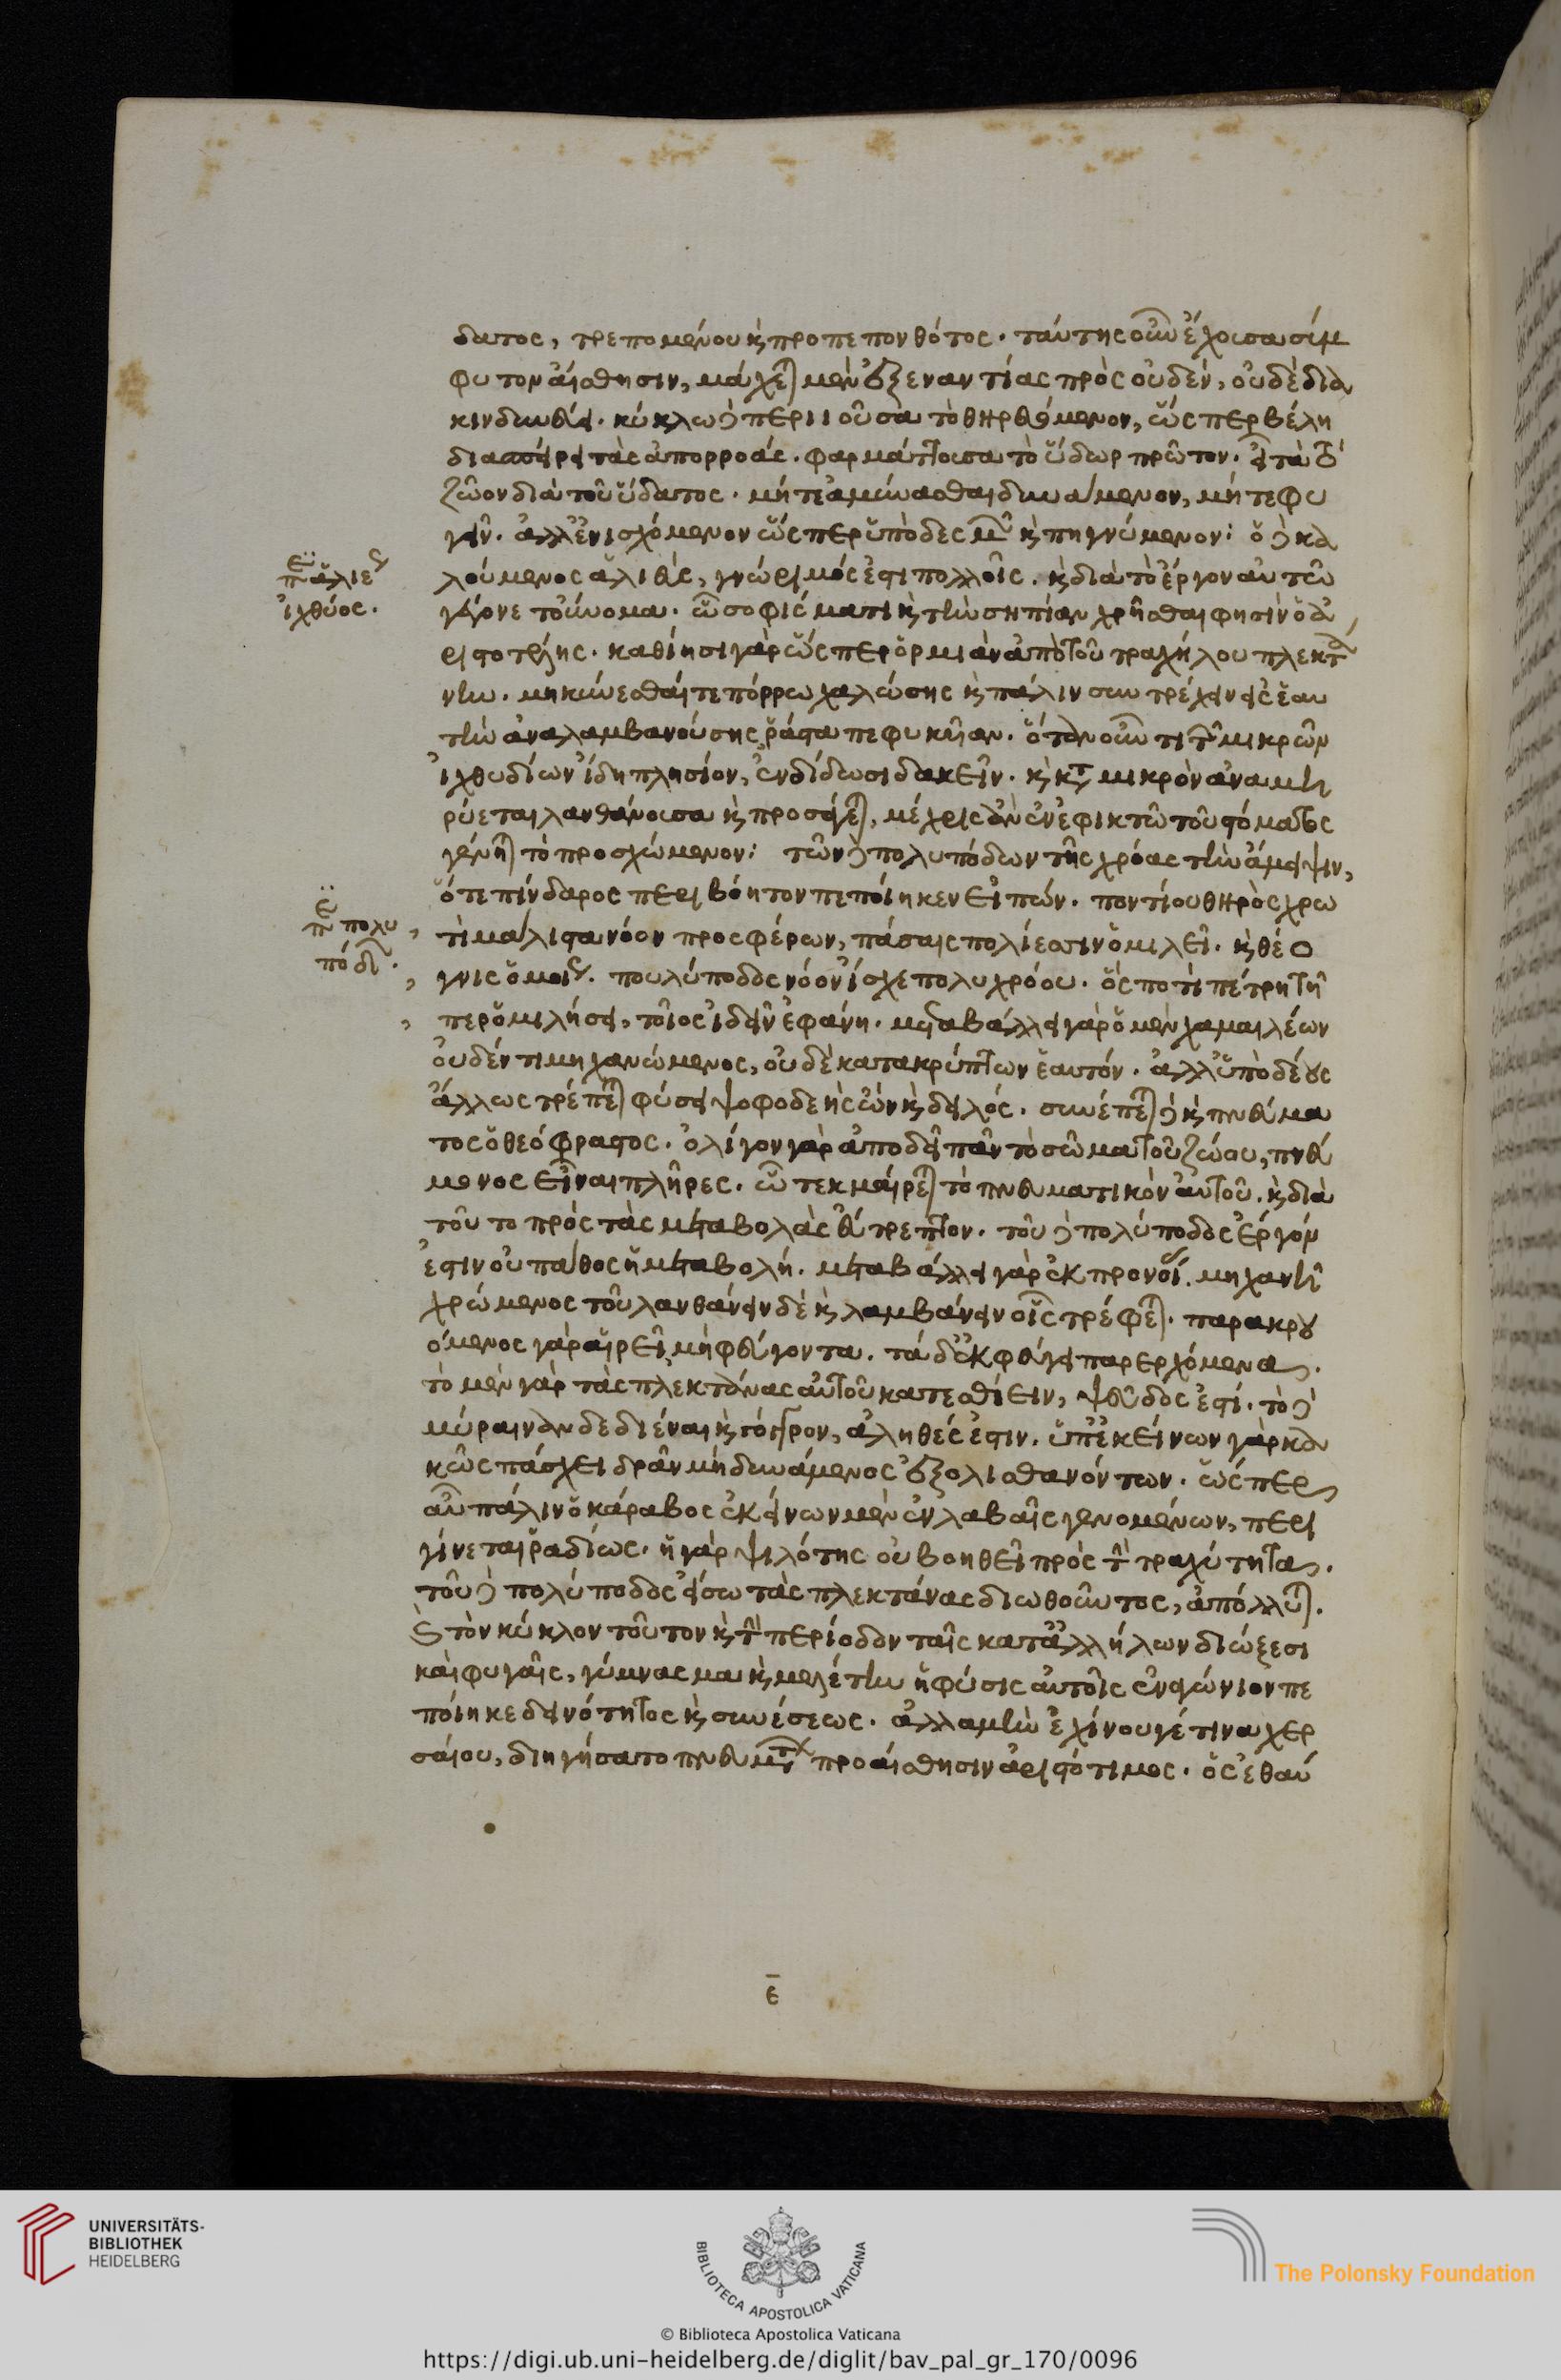 δατος, τρεπομένου κ προπεπονθότος. ταύτης οὖν ἔχουσα σύμ
φυτον αἴσθησιν, μάχεται μὲν ἐξεναντίας πρὸς οὐδέν, οὐδὲ δια
κινδυνεύει. κύκλω δὲ περιιοῦσα τὸ θηρευόμενον, ὥςπερ βέλη
διασπείρει τὰς ἀπορροάς. φαρμάττουσα τὸ ὕδωρ πρῶτον. εἶτα τὸ
ζῶον διὰ τοῦ ὕδατος. μήτε ἀμύνασθαι δυνάμενον, μήτε φυ
γεῖν. ἀλλ' ἐνισχόμενον ὥςπερ ὑπὸ δεσμοῦ κ πηγνύμενον: ὁ δὲ κα
π ἁλιέως
ἰχθύος.
λούμενος ἁλιεὺς, γνώριμός ἐστι πολλοῖς. κ διὰ τὸ ἔργον αὐτῶ
γέγονε τοὔνομα. ὧ σοφίσματι κ τὴν σηπίαν χρῆσθαι φησὶν ὁ ἀ
ριστοτέλης. καθίησι γὰρ ὥςπερ ὁρμιὰν ἀπὸ τοῦ τραχήλου πλεκτά
νην. μηκύνεσθαί τε πόρρω χαλώσης κ πάλιν συντρέχειν εἰς ἑαυ
τὴν ἀναλαμβανούσης ῥᾷστα πεφυκυῖαν. ὅταν οὖν τι τῶν μικρῶν
ἰχθυδίων ἴδη πλησίον, ἐνδίδωσι δακεῖν. κ κατὰ μικρὸν ἀναμη
ρύεται λανθάνουσα κ προσάγεται, μέχρις ἂν ἐν ἐφικτῶ τοῦ στόματος
γένηται τὸ προσχόμενον: τῶν δὲ πολυπόδων τῆς χρόας τὴν ἄμειψιν,
π πολύ
ποδος.
ὅτε πίνδαρος περιβόητον πεποίηκεν εἰπών. ποντίου θηρὸς χρω
τὶ μάλιστα νόον προςφέρων, πάσαις πολίεσσιν ὁμιλεῖ. κ θέο
γνις ὁμοίως. πουλύποδος νόον ἴσχε πολυχρόου. ὅς ποτὶ πέτρη τῆ
περ ὁμιλήσει, τοῖος ἰδεῖν ἐφάνη. μεταβάλλει γὰρ ὁ μὲν χαμαιλέων
οὐδέν τι μηχανώμενος, οὐδὲ κατακρύπτων ἑαυτόν. ἀλλ' ὑπὸ δέους
ἄλλως τρέπεται φύσει ψοφοδεὴς ὢν κ δειλός. συνέπεται δὲ κ πνεύμα
τος ὁ θεόφραστος. ὀλίγον γὰρ ἀποδεῖ πᾶν τὸ σῶμα τοῦ ζώου, πνεύ
μονος εἶναι πλῆρες. ὧ τεκμαίρεται τὸ πνευματικὸν αὐτοῦ. κ διὰ
τοῦτο πρὸς τὰς μεταβολὰς εὔτρεπτον. τοῦ δὲ πολύποδος ἔργόν
ἐστιν οὐ πάθος ἡ μεταβολή. μεταβάλλει γὰρ ἐκ προνοίας. μηχανῆ
χρώμενος τοῦ λανθάνειν δέ κ λαμβάνειν οἷς τρέφεται. παρακρου
όμενος γὰρ αἱρεῖ, μὴ φεύγοντα. τὰ δ' ἐκφεύγει παρερχόμενα.
τὸ μὲν γὰρ τὰς πλεκτάνας αὐτοῦ κατεσθίειν, ψεῦδος ἐστί. τὸ δὲ
μύραιναν δεδιέναι κ γόγγρον, ἀληθές ἐστιν. ὑπ' ἐκείνων γὰρ κα
κῶς πάσχει δρᾶν μὴ δυνάμενος ἐξολισθανόντων. ὥςπερ
αὖ πάλιν ὁ κάραβος ἐκείνων μὲν ἐν λαβαῖς γενομένων, περι
γίνεται ῥαδίως. ἡ γὰρ ψιλότης οὐ βοηθεῖ πρὸς τὴν τραχύτητα.
τοῦ δὲ πολύποδος εἴσω τὰς πλεκτάνας διωθοῦντος, ἀπόλλυται.
κ τὸν κύκλον τοῦτον κ τὴν περίοδον ταῖς κατ' ἀλλήλων διώξεσι
καὶ φυγαῖς, γύμνασμα κ μελέτην ἡ φύσις αὐτοῖς ἐναγώνιον πε
ποίηκε δεινότητος κ συνέσεως. ἀλλὰ μὴν ἐχίνου γέ τινα χερ
σαίου, διηγήσατο πνευμάτων προαίσθησιν ἀριστότιμος. ὃς ἐθαύ
ε
UNIVERSITÄTS-
BIBLIOTHEK
HEIDELBERG
BIBLIOTECA APOSTOLICA VATICANA
The Polonsky Foundation
© Biblioteca Apostolica Vaticana
https://digi.ub.uni-heidelberg.de/diglit/bav_pal_gr_170/0096